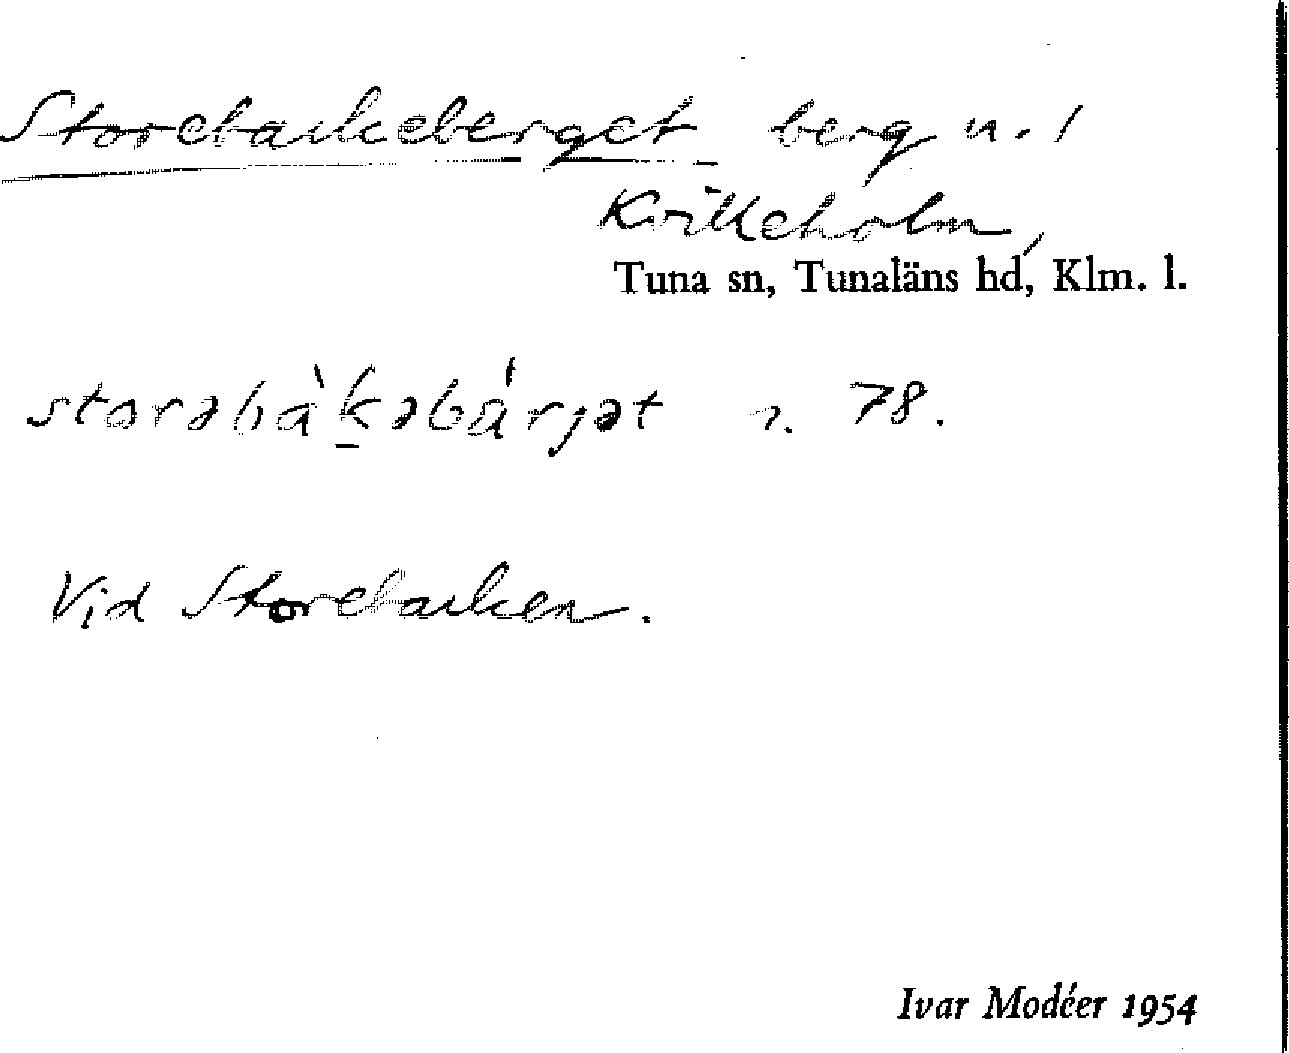 Storebackeberget berg n. 1
Krikeholm,
Tuna sn, Tunaläns hd, Klm. l.
storəbàk̠əbárjət r. 78.
Vid Storebacken.
Ivar Modéer 1954